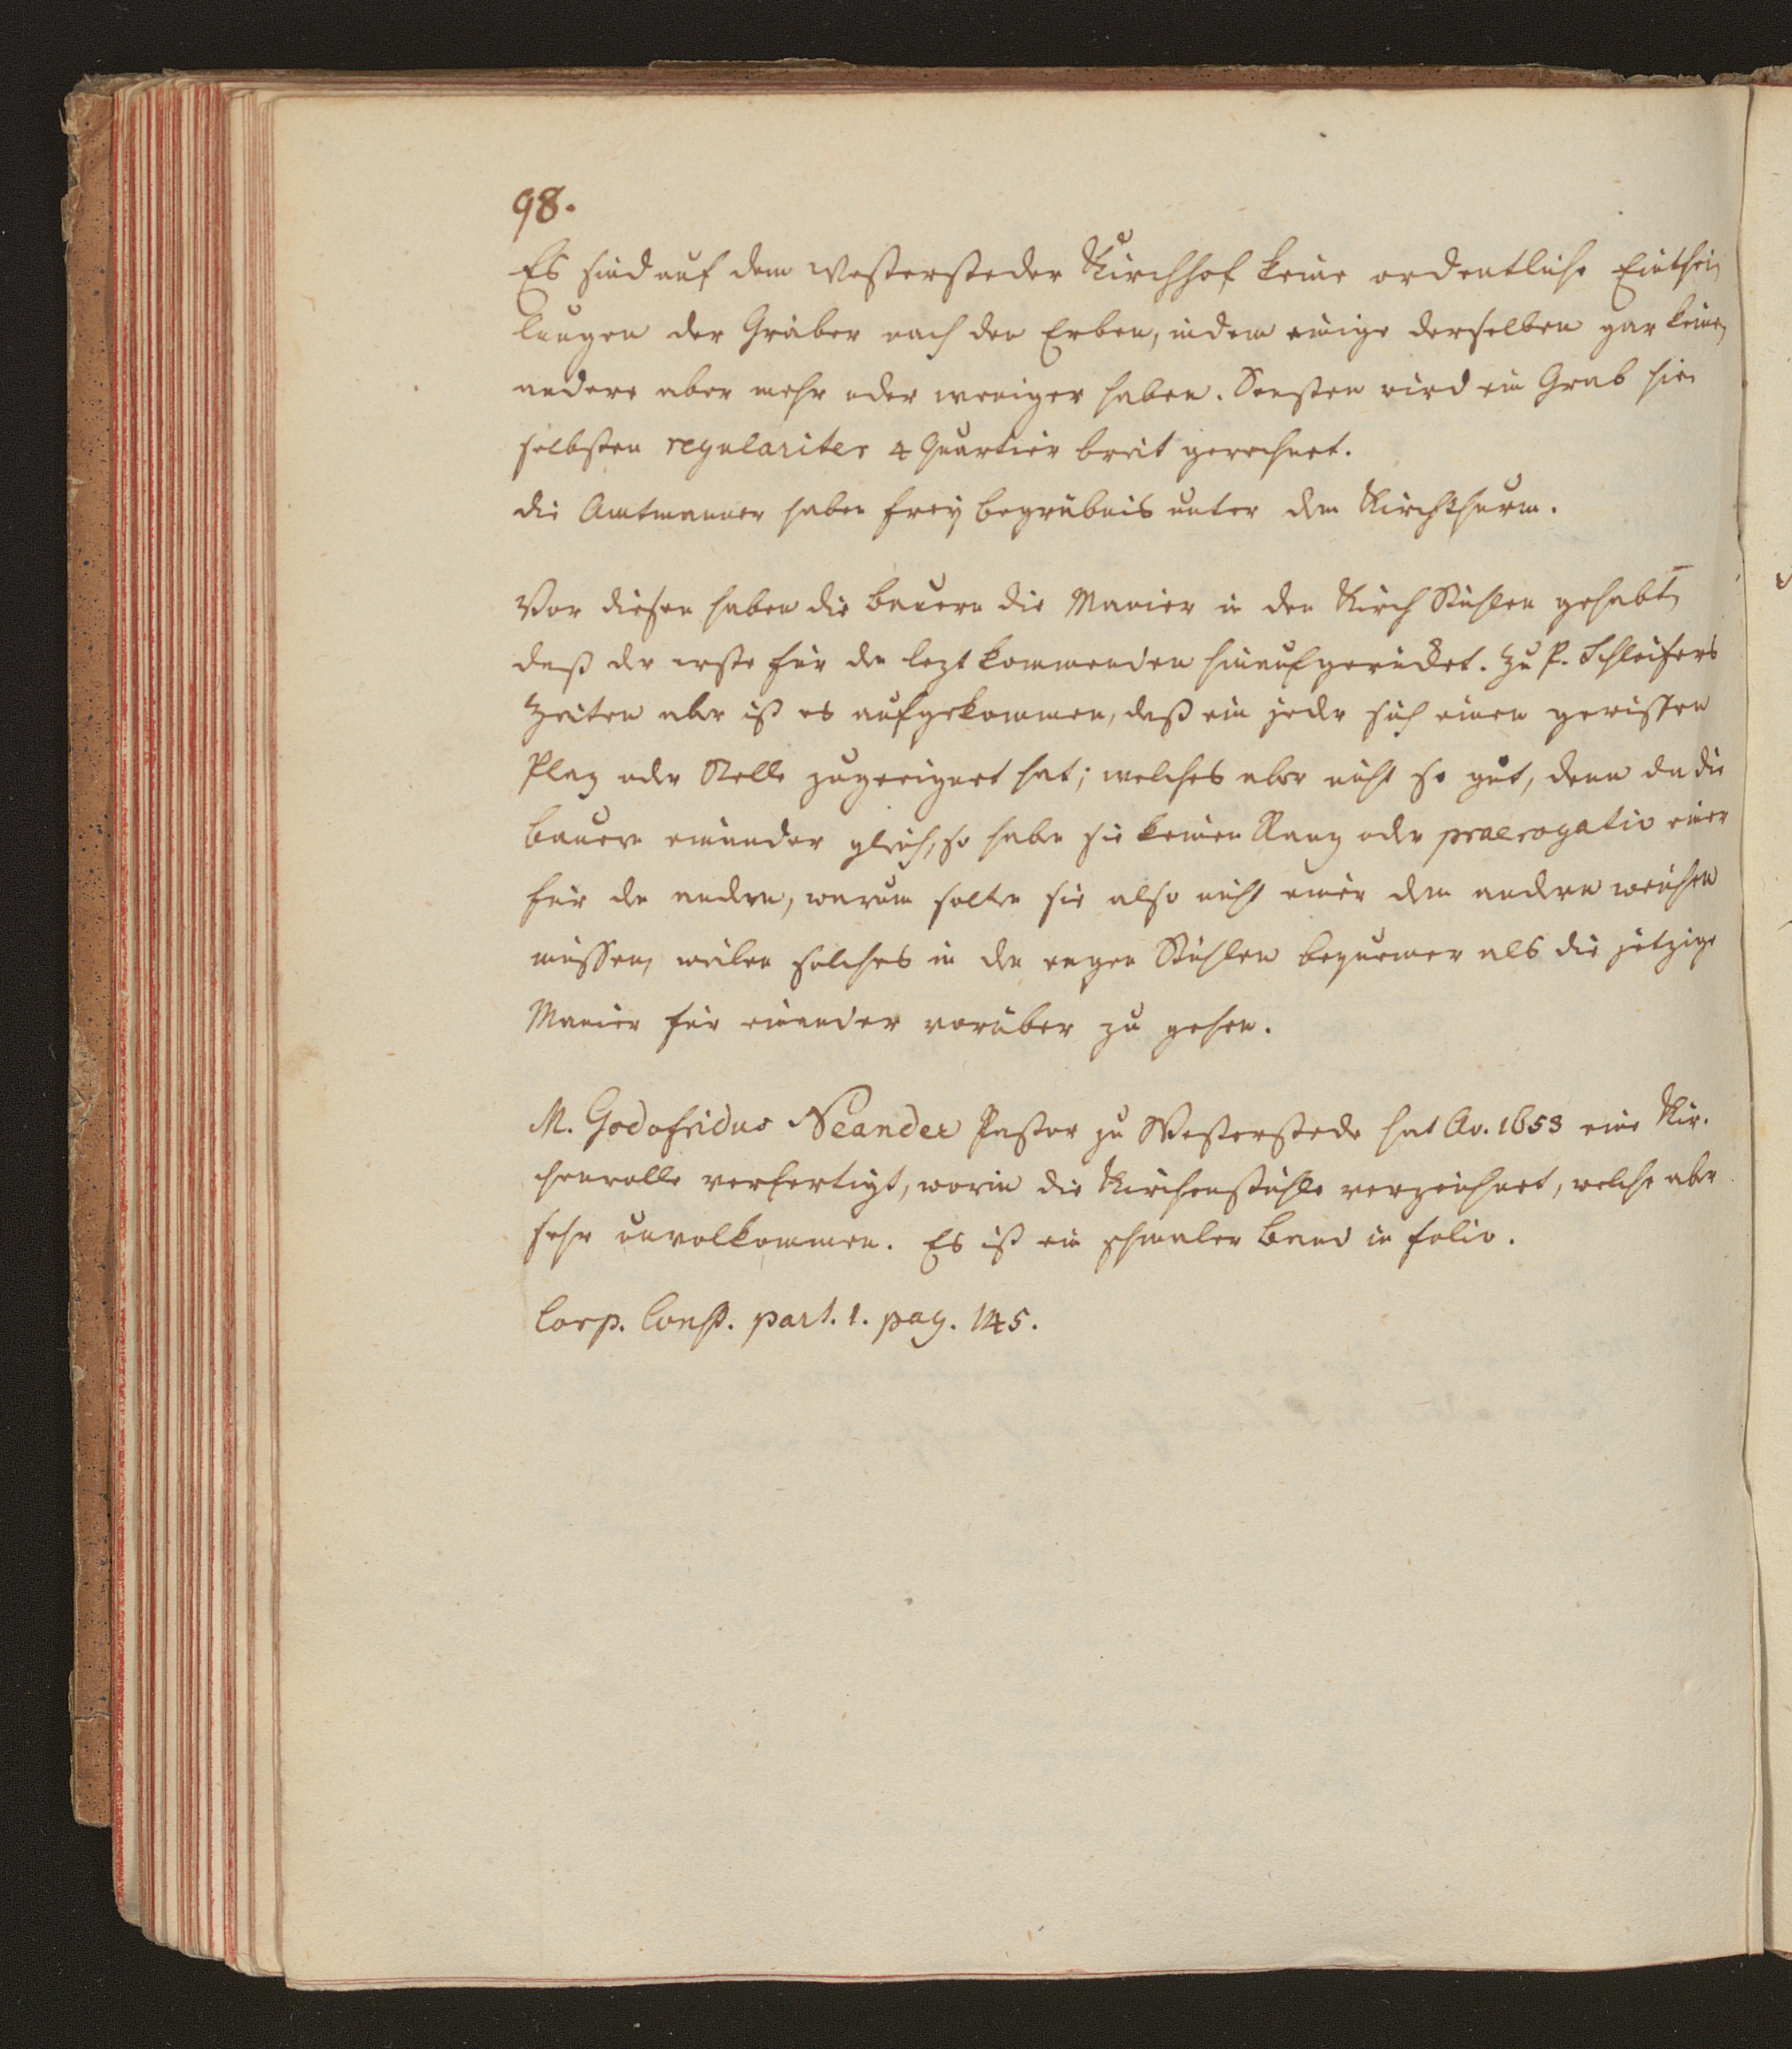 98.
Es sind auf dem Westersteder Kirchhof keine ordentliche Einthei,
lungen der Gräber nach den Erben, indem einige derselben gar keine,
andere aber mehr oder weniger haben. Sonsten wird ein Grab hie
selbsten regulariter 4 Quartier breit gerechnet.
die Amtmanner haben frey begräbnis unter dem Kirchthurm.
Vor diesen haben die bauern die Manier in den Kirch Stühlen gehabt,
daß der erste für den lezt kommenden hinauf gerücket. Zu P. Schleifers
Zeiten aber ist es aufgekommen, daß ein jeder sich einen gewissen
Plaz oder Stelle zugeeignet hat; welches aber nicht so gut, denn da die
bauern einander gleich, so haben sie keinen Rang oder praerogativ einer
für den andern, warum solten sie also nicht einer dem andern weichen
müssen, weilen solches in den engen Stühlen bequemer als die jetzige
Manier für einander vorüber zu gehen.
M. Godofridus Neander Pastor zu Westerstede hat Ao. 1653 eine Kir.
chenrolle verfertigt, worin die Kirchenstühle verzeichnet, welche aber
sehr unvolkommen. Es ist ein schmaler Band in folio.
Corp. Const. part. 1. pag. 145.